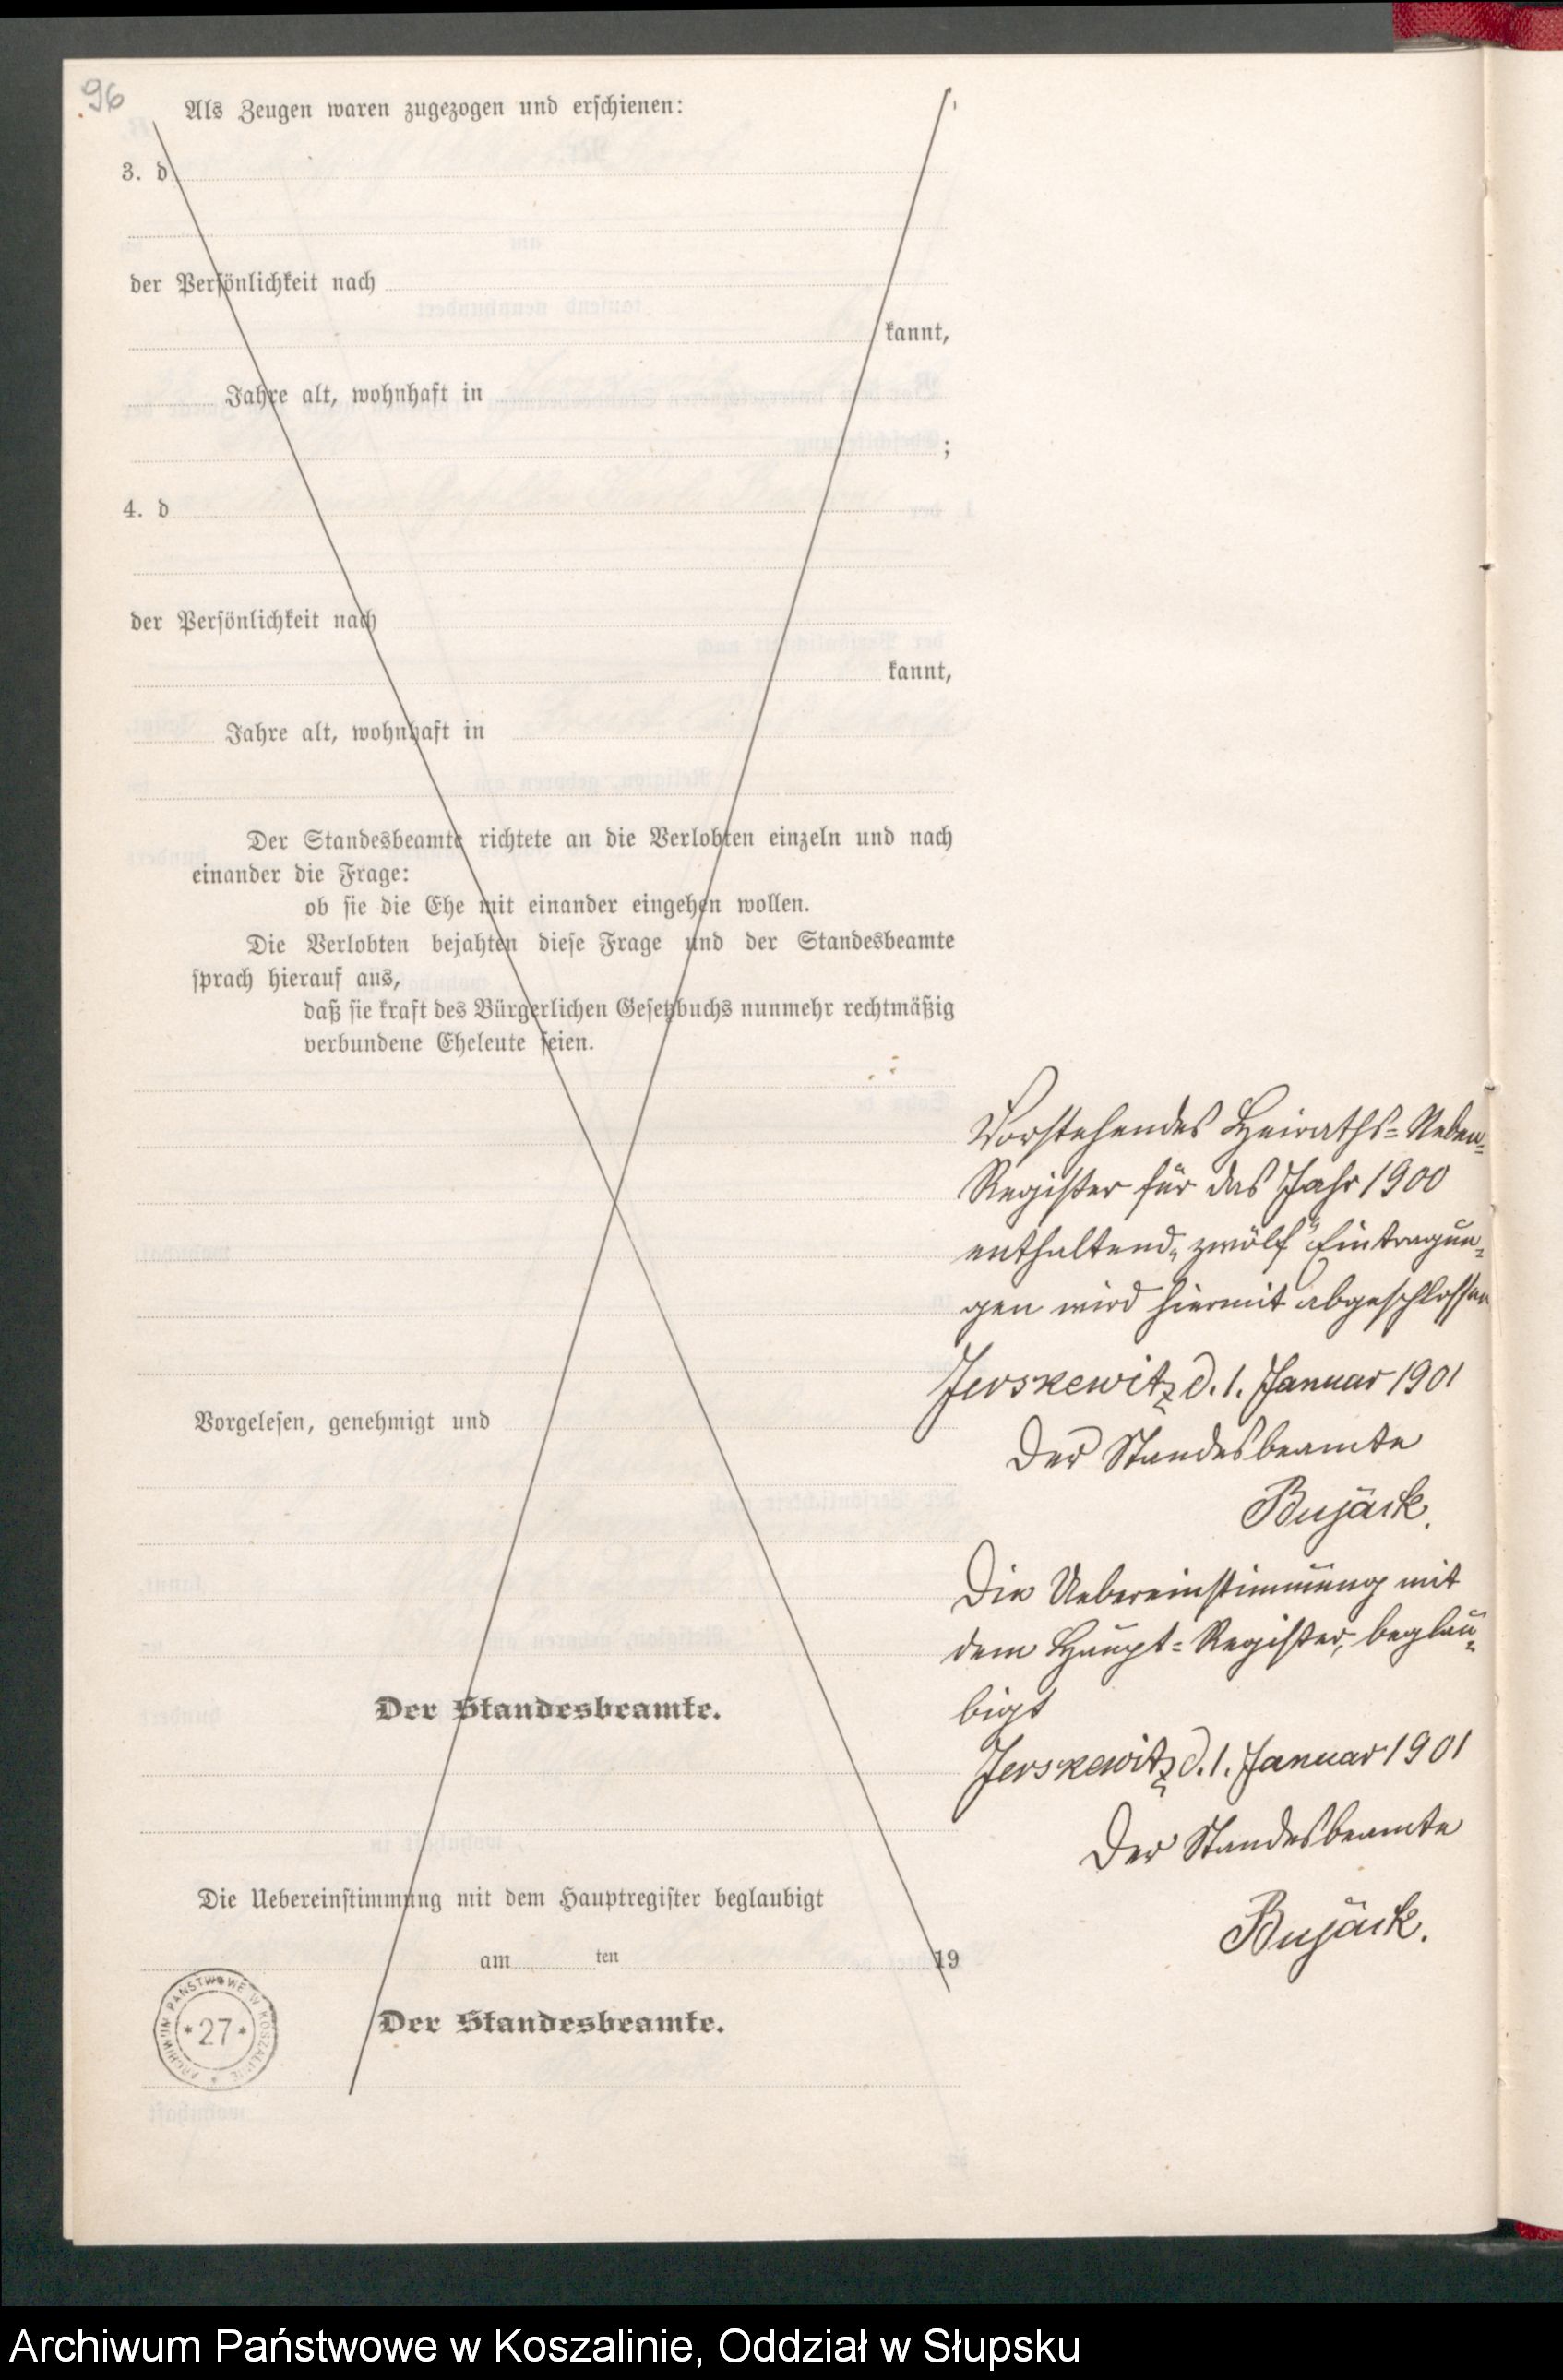 96
Als Zeugen waren zugezogen und erschienen:
3. d
der Persönlichkeit nach
kannt,
Jahre alt, wohnhaft in
;
4. d
der Persönlichkeit nach
kannt,
Jahre alt, wohnhaft in
Der Standesbeamte richtete an die Verlobten einzeln und nach
einander die Frage:
ob sie die Ehe mit einander eingehen wollen.
Die Verlobten bejahten diese Frage und der Standesbeamte
sprach hierauf aus,
daß sie kraft des Bürgerlichen Gesetzbuchs nunmehr rechtmäßig
verbundene Eheleute seien.
Vorgelesen, genehmigt und
Der Standesbeamte.
Die Uebereinstimmung mit dem Hauptregister beglaubigt
am ten 19
Der Standesbeamte.
ARCHIWUM PAŃSTWOWE W KOSZALINIE
*27*
Vorstehendes Heiraths-Neben-
Register für das Jahr 1900
enthaltend „zwölf" Eintragun-
gen wird hiermit abgeschlossen
Jerskewitz d. 1. Januar 1901
Der Standesbeamte
Bujack.
Die Uebereinstimmung mit
dem Haupt-Register, beglau-
bigt
Jerskewitz d. 1. Januar 1901
Der Standesbeamte
Bujack.
Archiwum Państwowe w Koszalinie, Oddział w Słupsku